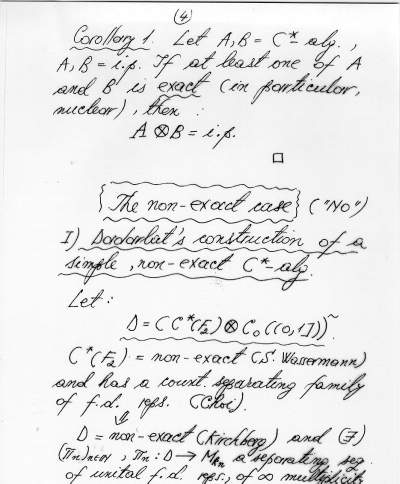 (4)
Corollary 1. Let A, B = C*-alg.,
A, B = i.p. If at least one of A
and B is exact (in particular,
nuclear), then :
A ⊗ B = i.p.
□
{The non-exact case} ("No")
I) Dadarlat's construction of a
simple, non-exact C*-alg.
Let :
D = (C*(F₂) ⊗ C₀((0,1]))~.
C*(F₂) = non-exact (S. Wassermann)
and has a count. separating family
of f.d. reps. (Choi).
⇓
D = non-exact (Kirchberg) and (∃)
(πₙ)ₙ∈ℕ, πₙ : D → M_kₙ a separating seq.
of unital f.d. reps., of ∞ multiplicity